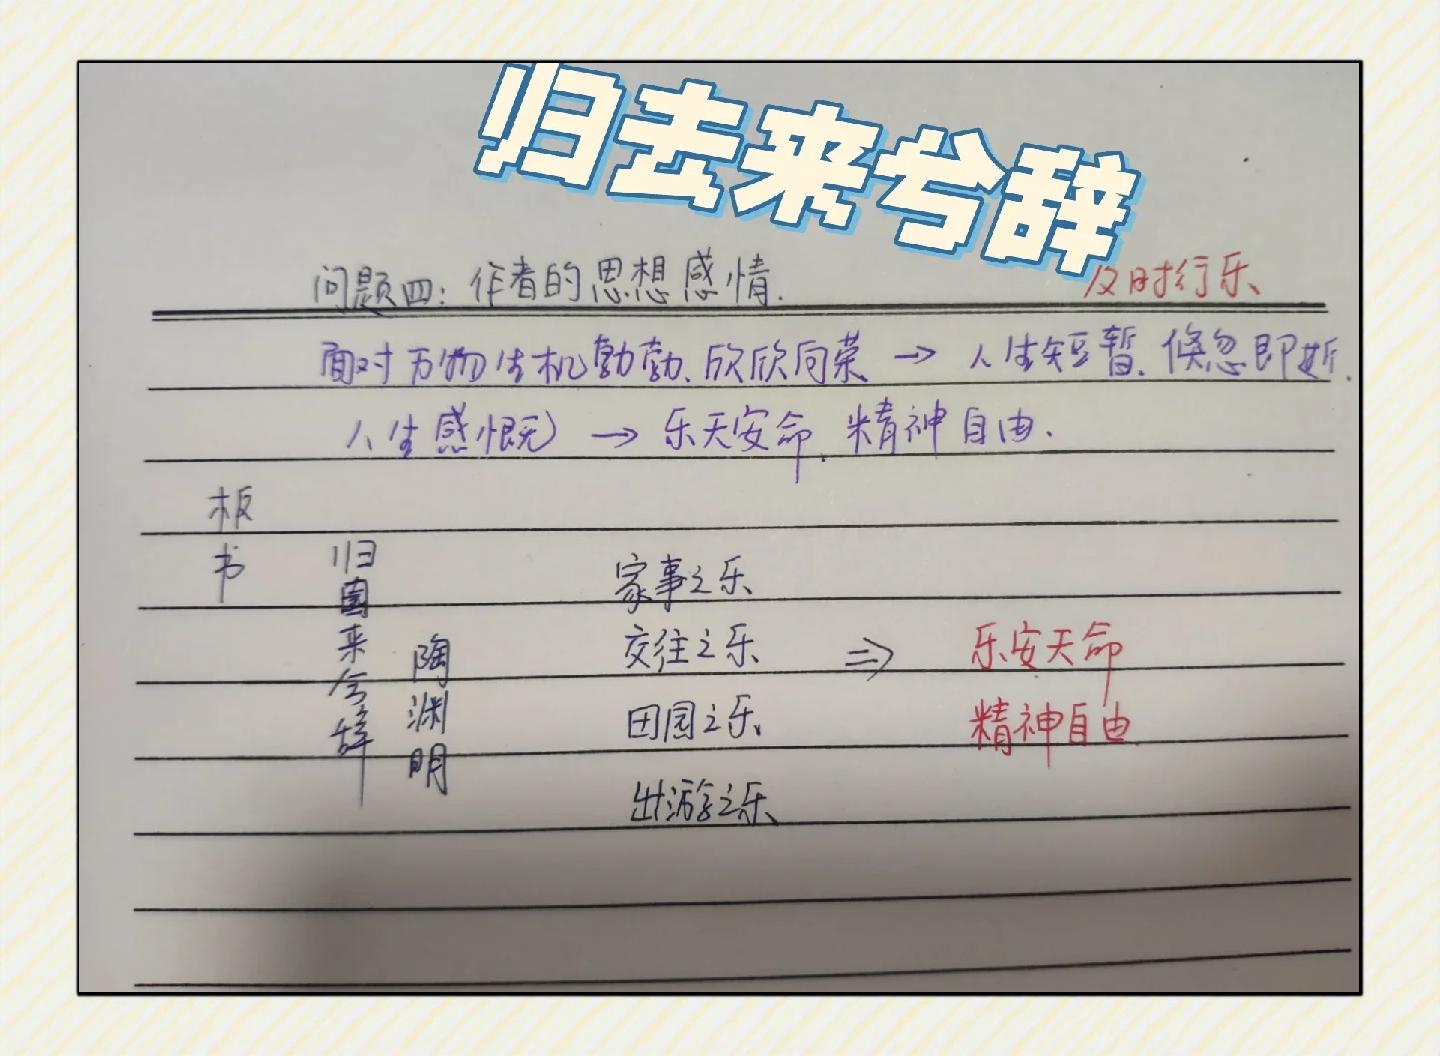 归去来兮辞
问题四:作者的思想感情.
及时行乐、
面对万物生机勃勃、欣欣向荣 → 人生短暂、倏忽即逝.
人生感慨 → 乐天安命、精神自由.
板书
归园来兮辞
陶渊明
家事之乐、
交往之乐、
田园之乐、
出游之乐、
⇒
乐安天命
精神自由